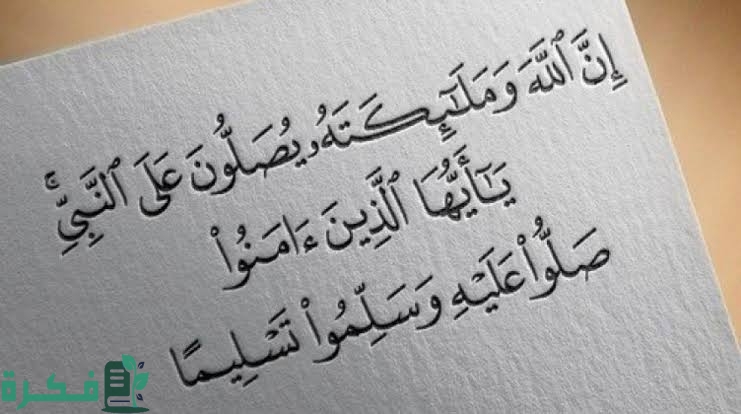 إِنَّ ٱللَّهَ وَمَلَٰٓئِكَتَهُۥ يُصَلُّونَ عَلَى ٱلنَّبِيِّۚ
يَٰٓأَيُّهَا ٱلَّذِينَ ءَامَنُواْ
صَلُّواْ عَلَيْهِ وَسَلِّمُواْ تَسْلِيمًا
فكرة